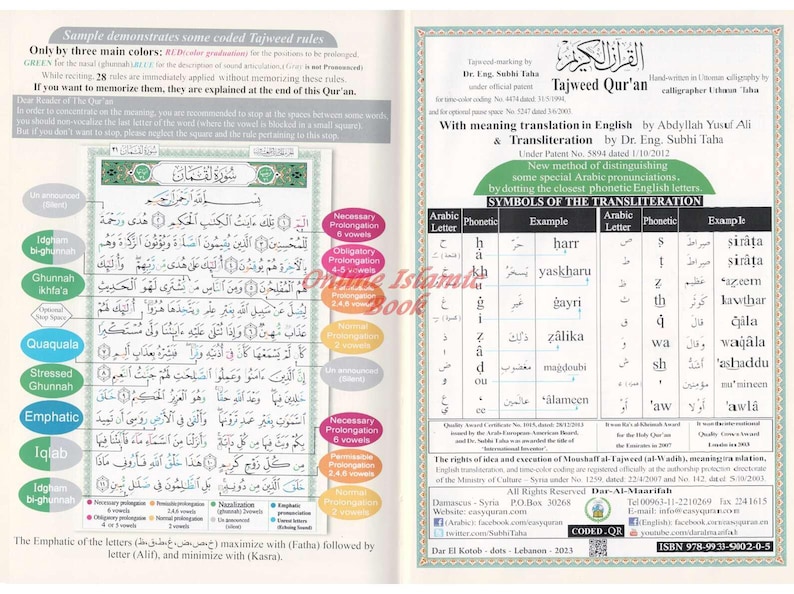 Sample demonstrates some coded Tajweed rules
Only by three main colors: RED(color graduation) for the positions to be prolonged.
GREEN for the nasal (ghunnah)BLUE for the description of sound articulation,(Gray is not Pronounced)
While reciting, 28 rules are immediately applied without memorizing these rules.
If you want to memorize them, they are explained at the end of this Qur'an.
Dear Reader of The Qur'an
In order to concentrate on the meaning, you are recommended to stop at the spaces between some words,
you should non-vocalize the last letter of the word (where the vowel is blocked in a small square).
But if you don't want to stop, please neglect the square and the rule pertaining to this stop.
سُورَةُ لُقْمَان ٣١
سُورَةُ لُقْمَان
بِسْمِ اللَّهِ الرَّحْمَٰنِ الرَّحِيمِ
الٓمٓ ١ تِلْكَ ءَايَٰتُ الْكِتَٰبِ الْحَكِيمِ ٢ هُدًى وَرَحْمَةً
لِّلْمُحْسِنِينَ ٣ الَّذِينَ يُقِيمُونَ الصَّلَوٰةَ وَيُؤْتُونَ الزَّكَوٰةَ وَهُم
بِالْأَخِرَةِ هُمْ يُوقِنُونَ ٤ أُوْلَٰٓئِكَ عَلَىٰ هُدًى مِّن رَّبِّهِمْ وَأُوْلَٰٓئِكَ
هُمُ الْمُفْلِحُونَ ٥ وَمِنَ النَّاسِ مَن يَشْتَرِي لَهْوَ الْحَدِيثِ
لِيُضِلَّ عَن سَبِيلِ اللَّهِ بِغَيْرِ عِلْمٍ وَيَتَّخِذَهَا هُزُوًا أُوْلَٰٓئِكَ لَهُمْ
عَذَابٌ مُّهِينٌ ٦ وَإِذَا تُتْلَىٰ عَلَيْهِ ءَايَٰتُنَا وَلَّىٰ مُسْتَكْبِرًا
كَأَن لَّمْ يَسْمَعْهَا كَأَنَّ فِي أُذُنَيْهِ وَقْرًا فَبَشِّرْهُ بِعَذَابٍ أَلِيمٍ ٧
إِنَّ الَّذِينَ ءَامَنُوا وَعَمِلُوا الصَّٰلِحَٰتِ لَهُمْ جَنَّٰتُ النَّعِيمِ ٨
خَٰلِدِينَ فِيهَا وَعْدَ اللَّهِ حَقًّا وَهُوَ الْعَزِيزُ الْحَكِيمُ ٩ خَلَقَ
السَّمَٰوَٰتِ بِغَيْرِ عَمَدٍ تَرَوْنَهَا وَأَلْقَىٰ فِي الْأَرْضِ رَوَٰسِيَ أَن تَمِيدَ
بِكُمْ وَبَثَّ فِيهَا مِن كُلِّ دَابَّةٍ وَأَنزَلْنَا مِنَ السَّمَاءِ مَاءً فَأَنبَتْنَا فِيهَا
مِن كُلِّ زَوْجٍ كَرِيمٍ ١٠ هَٰذَا خَلْقُ اللَّهِ فَأَرُونِي مَاذَا
خَلَقَ الَّذِينَ مِن دُونِهِ
Un announced
(Silent)
Idgham
bi-ghunnah
Ghunnah
ikhfa'a
Optional
Stop Space
Quaquala
Stressed
Ghunnah
Emphatic
Iqlab
Idgham
bi-ghunnah
Necessary
Prolongation
6 vowels
Obligatory
Prolongation
4-5 vowels
Prolongation
2,4,6 vowels
Normal
Prolongation
2 vowels
Un announced
(Silent)
Necessary
Prolongation
6 vowels
Permissible
Prolongation
2,4,6 vowels
Normal
Prolongation
2 vowels
Necessary prolongation 6 vowels
Permissible prolongation 2,4,6 vowels
Nazalization (ghunnah) 2 vowels
Emphatic pronunciation
Obligatory prolongation 4 or 5 vowels
Normal prolongation 2 vowels
Un announced (silent)
Unrest letters (Echoing Sound)
The Emphatic of the letters (خ،ص،ض،غ،ط،ق،ظ) maximize with (Fatha) followed by
letter (Alif), and minimize with (Kasra).
Online Islamic
Book
القرآن الكريم
Tajweed Qur'an
Tajweed-marking by
Dr. Eng. Subhi Taha
under official patent
for time-color coding No. 4474 dated 31/5/1994,
and for optional pause space No. 5247 dated 3/6/2003.
Hand-written in Uttoman calligraphy by
calligrapher Uthman Taha
With meaning translation in English by Abdyllah Yusuf Ali
& Transliteration by Dr. Eng. Subhi Taha
Under Patent No. 5894 dated 1/10/2012
New method of distinguishing
some special Arabic pronunciations,
by dotting the closest phonetic English letters.
SYMBOLS OF THE TRANSLITERATION
Arabic Letter Phonetic Example Arabic Letter Phonetic Example
ح ḥ حَرّ ḥarr ص ṣ صِرَاط ṣirâṭa
â ط ṭ صِرَاط ṣirâṭa
خ kh يَسْخَرُ yaskharu ظ ẓ عَظِيم 'aẓeem
u ث th كَوْثَر kawthar
غ ġ غَيْرِ ġayri ق q قَالَ qâla
i و wa وَقَالَ waqâla
ذ z ذَلِكَ zâlika
â ش sh أَشَدُّ 'ashaddu
ض ḍ مَغْضُوب maġdoubi
و ou ء ' مُؤْمِنِينَ mu'mineen
ع ' عَالَمِين 'âlameen أَوْ 'aw أَوْلَا 'awlâ
ي ee
Quality Award Certificate No. 1015, dated: 28/12/2013
issued by the Arab-European-American Board,
and Dr. Subhi Taha was awarded the title of
"International Inventor".
It won Ra's al-Khaimah Award
for the Holy Qur'an
the Emirates in 2007
It won the international
Quality Crown Award
London in 2013
The rights of idea and execution of Moushaff al-Tajweed (al-Wadih), meaning translation,
English transliteration, and time-color coding are registered officially at the authorship protection directorate
of the Ministry of Culture – Syria under No. 1259, dated: 22/4/2007 and No. 142, dated 5/10/2003.
All Rights Reserved Dar-Al-Maarifah
Damascus - Syria P.O.Box 30268 Tel 00963-11-2210269 fax 2241615
Website: easyquran.com E-mail: info@easyquran.com
(Arabic): facebook.com/easyquran
(English): facebook.com/easyquran.en
twitter.com/SubhiTaha
CODED .QR
youtube.com/daralmaarifah
Dar El Kotob - dots - Lebanon - 2023
ISBN 978-9933-9002-0-5